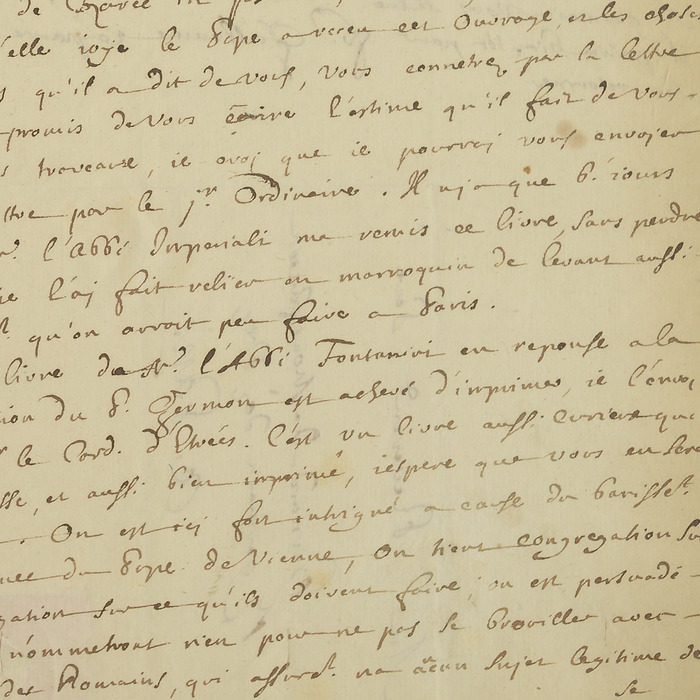 de
elle joye le Pape a receu cet Ouvrage, et les chose
qu'il a dit de vous, vous connetrez par la lettre
promis de vous écrire l'estime qu'il fait de vous
traveaux, ie croj que ie pourrej vous envojer
ttre par le jr Ordinaire. Il nja que 6. iours
l'Abbé Imperiali ma remis ce livre, sans perdre
ie l'aj fait relier en marroquin de levant aussi
qu'on avroit peu faire a Paris.
livre de Mr. l'Abbé Fontanini en reponse a la
tion du P. Germon est achevé d'imprimer, ie l'envoj
le Card. d'Etrées. C'est un livre aussi curieux que
sse, et aussi bien imprimé, iespere que vous en sere
On est icj fort intrigué a cause du
du Pape de Vienne, On tient congregation su
gation sur ce qu'ils doivent faire; on est persuadé
n'ommetront rien pour ne pas se broviller avec
des Romains, qui assurt. na aucun sujet legitime de
se